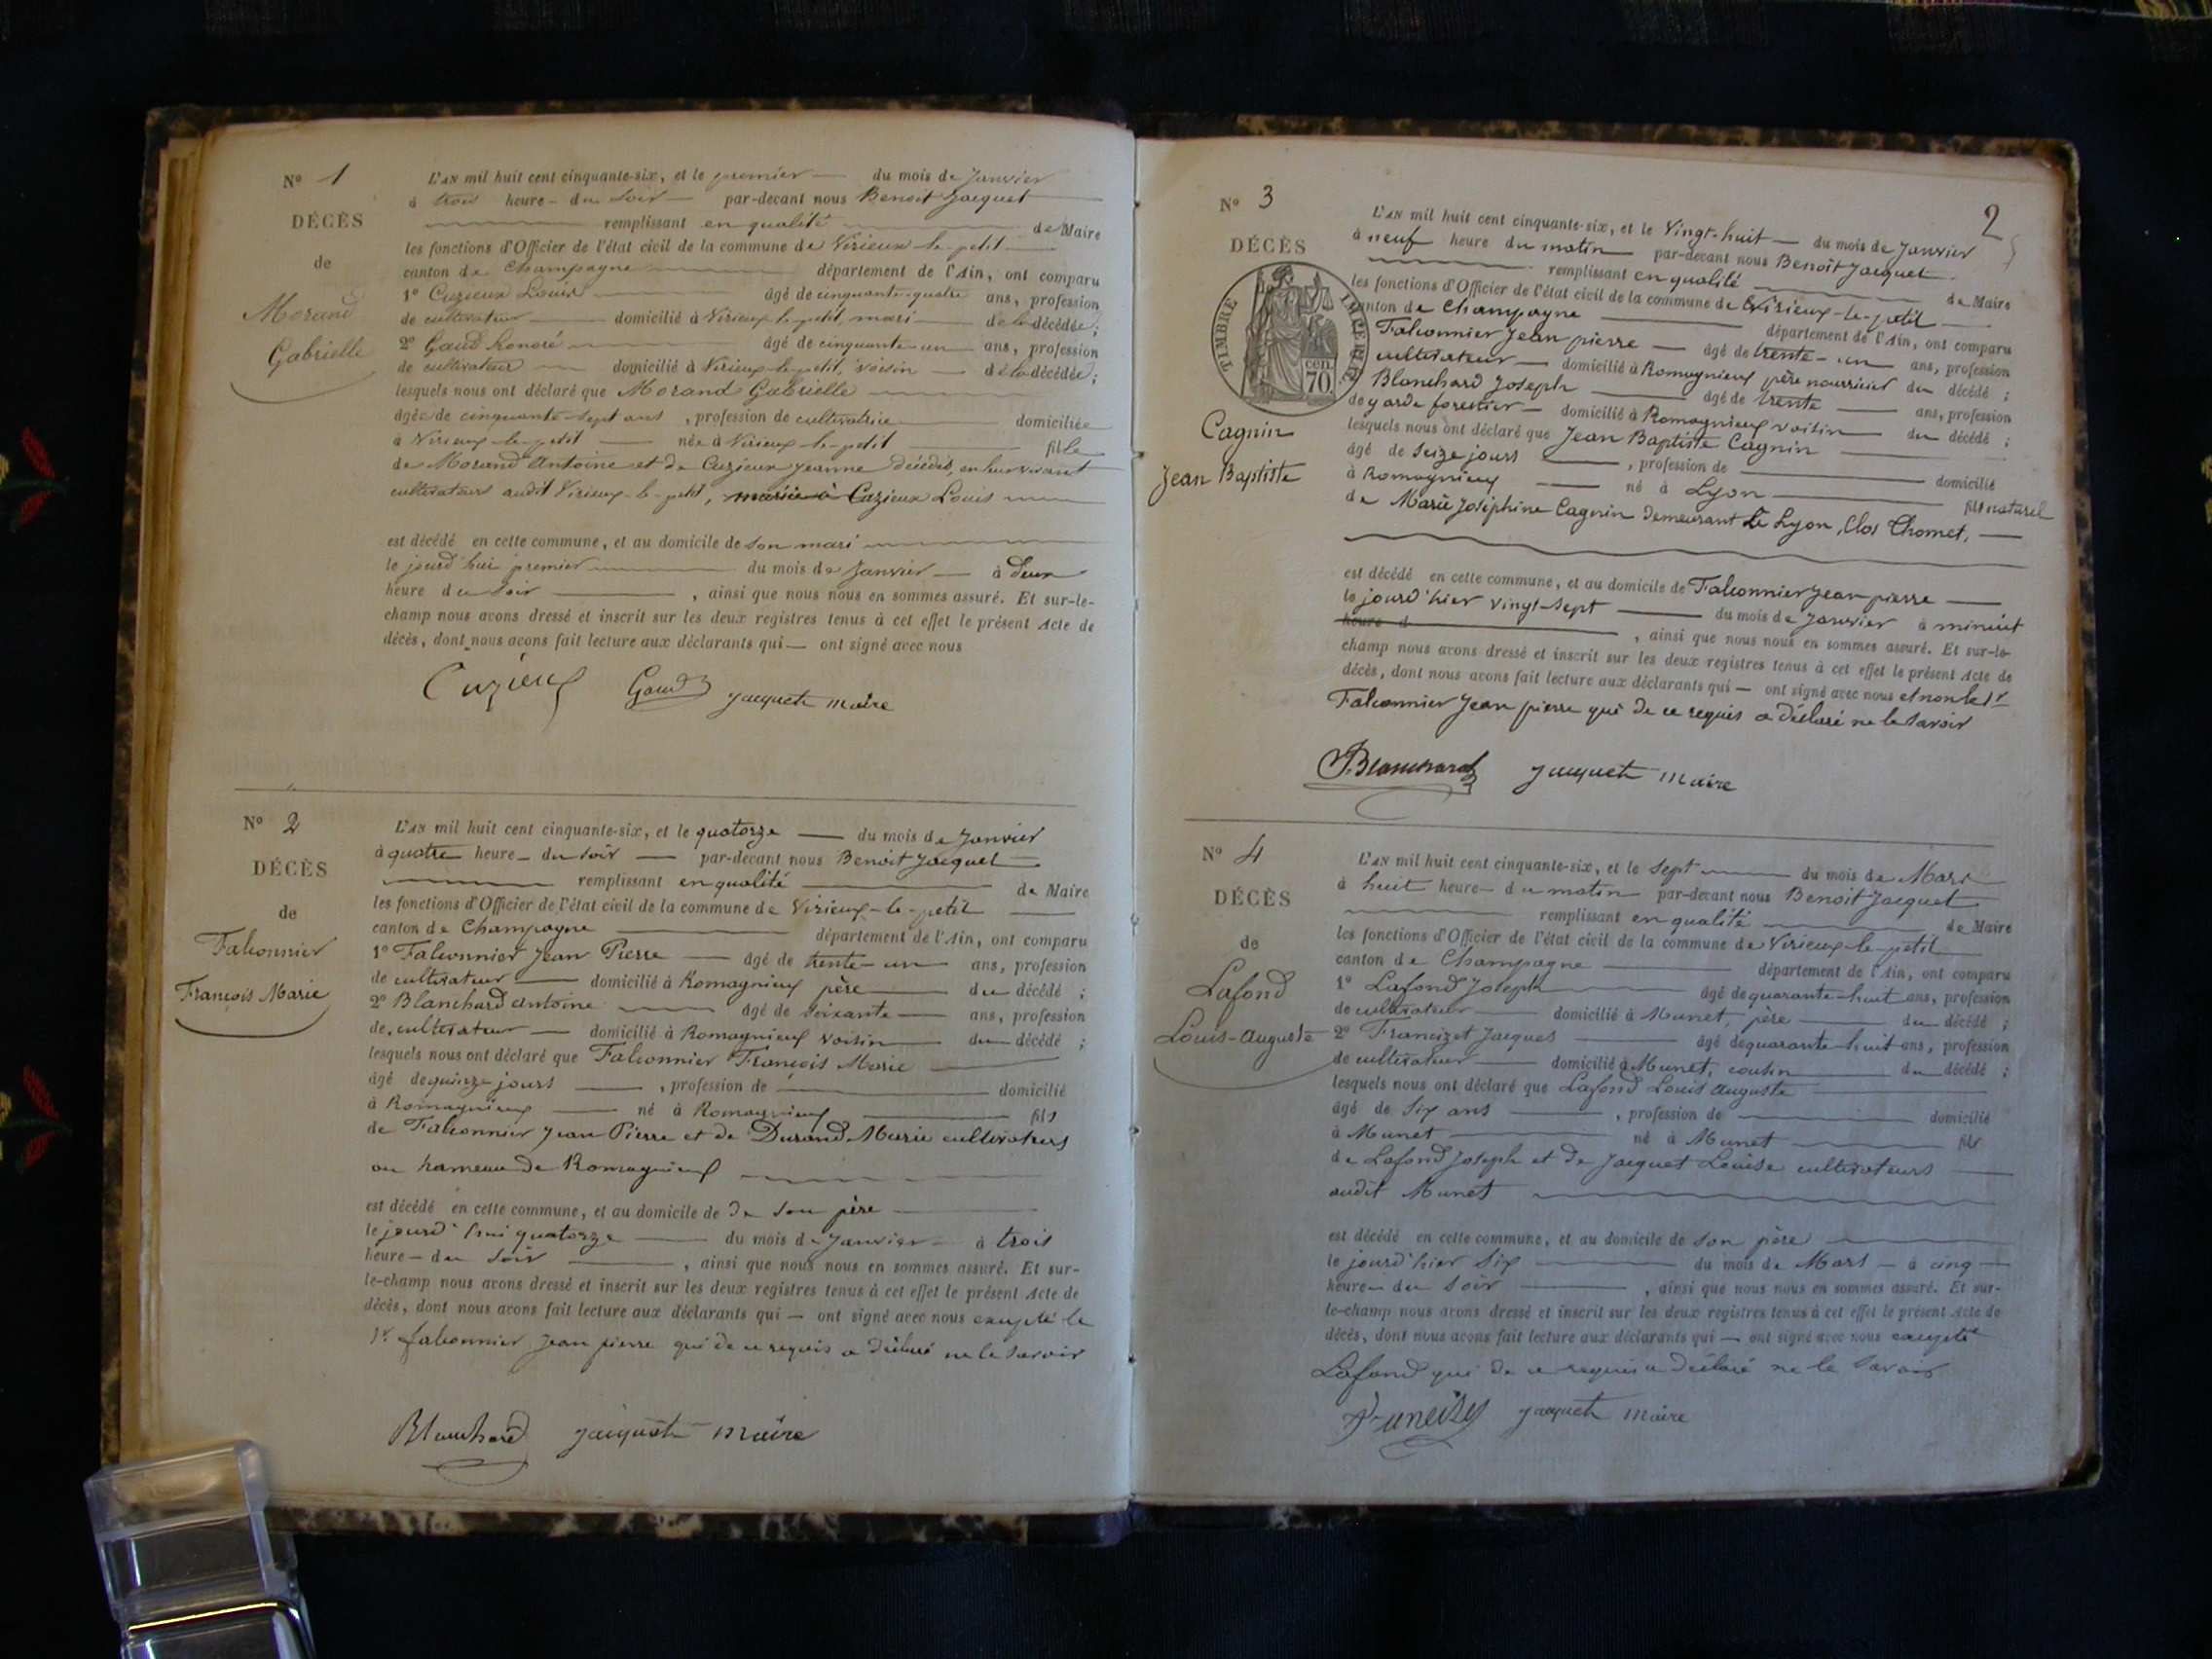 Nº 1
DÉCÈS
de
Morand
Gabrielle
L'AN mil huit cent cinquante-six, et le premier du mois de Janvier
à trois heure du soir par-devant nous Benoit Jacquet
remplissant en qualité de Maire
les fonctions d'Officier de l'état civil de la commune de Virieux-le-petit
canton de Champagne département de l'Ain, ont comparu
1º Cuzieux Louis âgé de cinquante-quatre ans, profession
de cultivateur domicilié à Virieux-le-petit, mari de la décédée;
2º Gaud honoré âgé de cinquante-un ans, profession
de cultivateur domicilié à Virieux-le-petit, voisin de la décédée;
lesquels nous ont déclaré que Morand Gabrielle
âgée de cinquante-sept ans, profession de cultivatrice domiciliée
à Virieux-le-petit née à Virieux-le-petit fille
de Morand Antoine et de Cuzieux Jeanne décédés, en leur vivant
cultivateurs audit Virieux-le-petit, mariée à Cuzieux Louis
est décédé en cette commune, et au domicile de son mari
le jourd'hui premier du mois de Janvier à deux
heure du soir, ainsi que nous nous en sommes assuré. Et sur-le-
champ nous avons dressé et inscrit sur les deux registres tenus à cet effet le présent Acte de
décès, dont nous avons fait lecture aux déclarants qui ont signé avec nous
Cuzieux Gaud Jacquet maire
Nº 2
DÉCÈS
de
Falconnier
François Marie
L'AN mil huit cent cinquante-six, et le quatorze du mois de Janvier
à quatre heure du soir par-devant nous Benoit Jacquet
remplissant en qualité de Maire
les fonctions d'Officier de l'état civil de la commune de Virieux-le-petit
canton de Champagne département de l'Ain, ont comparu
1º Falconnier Jean Pierre âgé de trente-un ans, profession
de cultivateur domicilié à Romagnieux père du décédé;
2º Blanchard antoine âgé de soixante ans, profession
de cultivateur domicilié à Romagnieux voisin du décédé;
lesquels nous ont déclaré que Falconnier François Marie
âgé de quinze jours, profession de domicilié
à Romagnieux né à Romagnieux fils
de Falconnier Jean Pierre et de Durand Marie cultivateurs
au hameau de Romagnieux
est décédé en cette commune, et au domicile de de son père
le jourd'hui quatorze du mois de Janvier à trois
heure du soir, ainsi que nous nous en sommes assuré. Et sur-
le-champ nous avons dressé et inscrit sur les deux registres tenus à cet effet le présent Acte de
décès, dont nous avons fait lecture aux déclarants qui ont signé avec nous excepté le
Sr falconnier Jean pierre qui de ce requis a déclaré ne le savoir
Blanchard Jacquet maire
2
Nº 3
DÉCÈS
TIMBRE IMPERIAL
70 cen
Cagnin
Jean Baptiste
L'AN mil huit cent cinquante-six, et le Vingt-huit du mois de Janvier
à neuf heure du matin par-devant nous Benoit Jacquet
remplissant en qualité de Maire
les fonctions d'Officier de l'état civil de la commune de Virieux-le-petit
canton de Champagne département de l'Ain, ont comparu
Falconnier Jean pierre âgé de trente-un ans, profession
cultivateur domicilié à Romagnieux père nourricier du décédé;
Blanchard Joseph âgé de trente ans, profession
de garde forestier domicilié à Romagnieux voisin du décédé;
lesquels nous ont déclaré que Jean Baptiste Cagnin
âgé de Seize jours, profession de domicilié
à Romagnieux né à Lyon fils naturel
de Marie Joséphine Cagnin demeurant à Lyon, Clos Chomet,
est décédé en cette commune, et au domicile de Falconnier Jean pierre
le jourd'hier vingt-sept du mois de Janvier à minuit
heure d, ainsi que nous nous en sommes assuré. Et sur-le-
champ nous avons dressé et inscrit sur les deux registres tenus à cet effet le présent Acte de
décès, dont nous avons fait lecture aux déclarants qui ont signé avec nous et non le Sr
Falconnier Jean pierre qui de ce requis a déclaré ne le savoir
Blanchard Jacquet maire
Nº 4
DÉCÈS
de
Lafond
Louis-auguste
L'AN mil huit cent cinquante-six, et le Sept du mois de Mars
à huit heure du matin par-devant nous Benoit Jacquet
remplissant en qualité de Maire
les fonctions d'Officier de l'état civil de la commune de Virieux-le-petit
canton de Champagne département de l'Ain, ont comparu
1º Lafond Joseph âgé de quarante-huit ans, profession
de cultivateur domicilié à Munet, père du décédé;
2º Francizet Jacques âgé de quarante-huit ans, profession
de cultivateur domicilié à Munet, cousin du décédé;
lesquels nous ont déclaré que Lafond Louis auguste
âgé de Six ans, profession de domicilié
à Munet né à Munet fils
de Lafond Joseph et de Jacquet Louise cultivateurs
audit Munet
est décédé en cette commune, et au domicile de son père
le jourd'hier Six du mois de Mars à cinq
heure du soir, ainsi que nous nous en sommes assuré. Et sur-
le-champ nous avons dressé et inscrit sur les deux registres tenus à cet effet le présent Acte de
décès, dont nous avons fait lecture aux déclarants qui ont signé avec nous excepté
Lafond qui de ce requis a déclaré ne le savoir
Jacquet maire